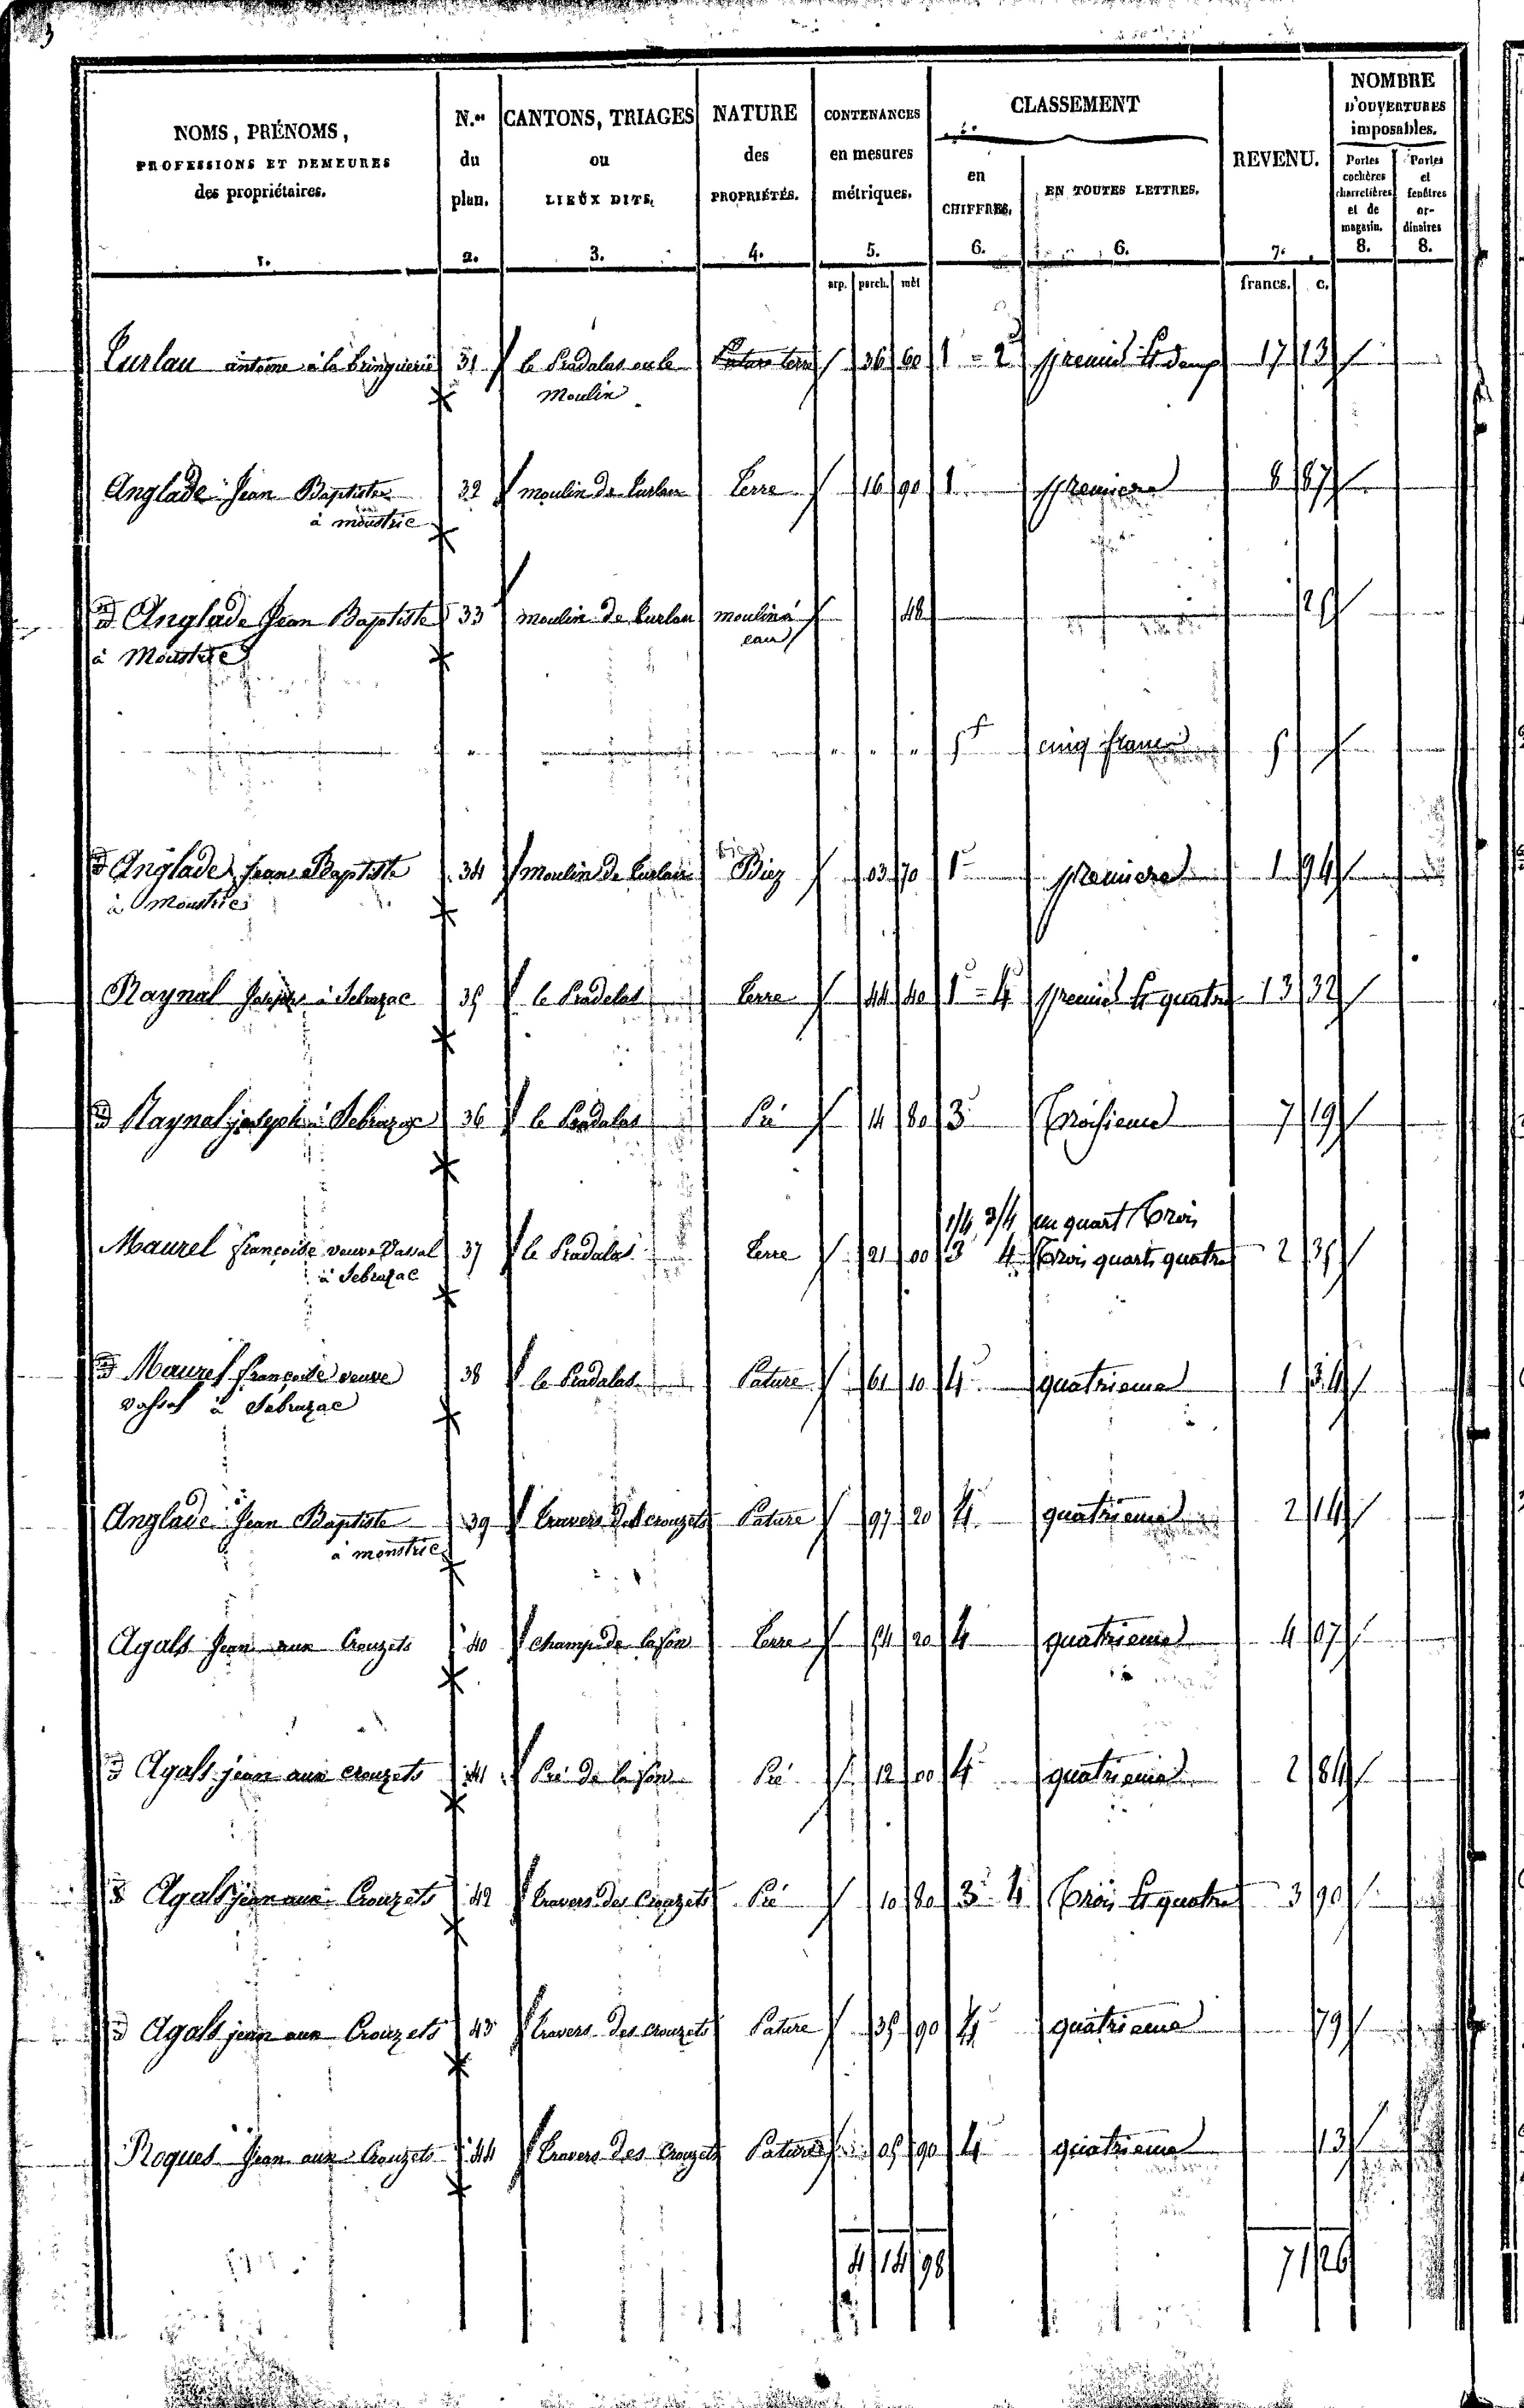 NOMS, PRÉNOMS, PROFESSIONS ET DEMEURES des propriétaires. 1.
N.os du plan. 2.
CANTONS, TRIAGES ou LIEUX DITS. 3.
NATURE des PROPRIÉTÉS. 4.
CONTENANCES en mesures métriques. 5.
CLASSEMENT
en CHIFFRES. 6.
EN TOUTES LETTRES. 6.
REVENU. 7.
NOMBRE D'OUVERTURES imposables.
Portes cochères charretières et de magasin. 8.
Portes et fenêtres ordinaires 8.
arp. perch. mèt francs. c.
Curlau antoine à la 31 le Pradalas ou le terre 36 60 1 = 2 premiere et deux 17 13
Moulin
Anglade Jean Baptiste 32 moulin de Curlau Terre 16 90 1 Premiere 8 87
à moustrie
d Anglade Jean Baptiste 33 moulin de Curlau moulin à 48 29
à Moustrie eau
5f cinq francs 5
d Anglade Jean Baptiste 34 Moulin de Curlau Biez 03 70 1re premiere 1 94
à Moustrie
Raynal Joseph à Sebrazac 35 le Pradalas Terre 44 40 1 = 4 premiere et quatre 13 32
d Raynal joseph à Sebrazac 36 le Pradalas Pré 14 80 3e troisieme 7 19
1/4 3/4 un quart trois
Maurel françoise veuve Vassal 37 le Pradalas Terre 21 00 3 4 trois quarts quatre 2 35
à Sebrazac
d Maurel francoise veuve 38 le Pradalas Pature 61 10 4e quatrieme 1 34
Vassal à Sebrazac
Anglade Jean Baptiste 39 travers des crouzets Pature 97 20 4 quatrieme 2 14
à moustrie
Agals Jean aux Crouzets 40 champ de la fon Terre 54 20 4 quatrieme 4 07
d Agals jean aux crouzets 41 Pré de la fon Pré 12 00 4e quatrieme 2 84
d Agals jean aux Crouzets 42 travers des Crouzets Pré 10 80 3e 4 trois et quatre 3 90
d Agals jean aux Crouzets 43 travers des crouzets Pature 35 90 4e quatrieme 79
Roques Jean aux Crouzets 44 travers des Crouzets Pature 05 90 4e quatrieme 13
4 14 98 71 26